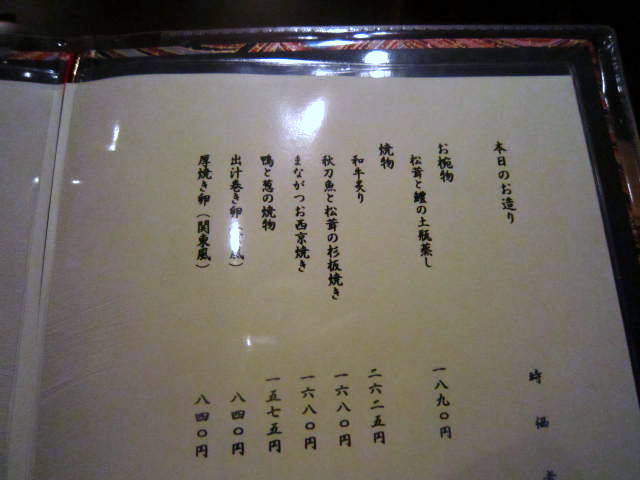 本日のお造り
時価
お椀物
松茸と鱧の土瓶蒸し 一八九〇円
焼物
和牛炙り 二六二五円
秋刀魚と松茸の杉板焼き 一六八〇円
まながつお西京焼き 一六八〇円
鴨と葱の焼物 一五七五円
出汁巻き卵 風） 八四〇円
厚焼き卵（関東風） 八四〇円